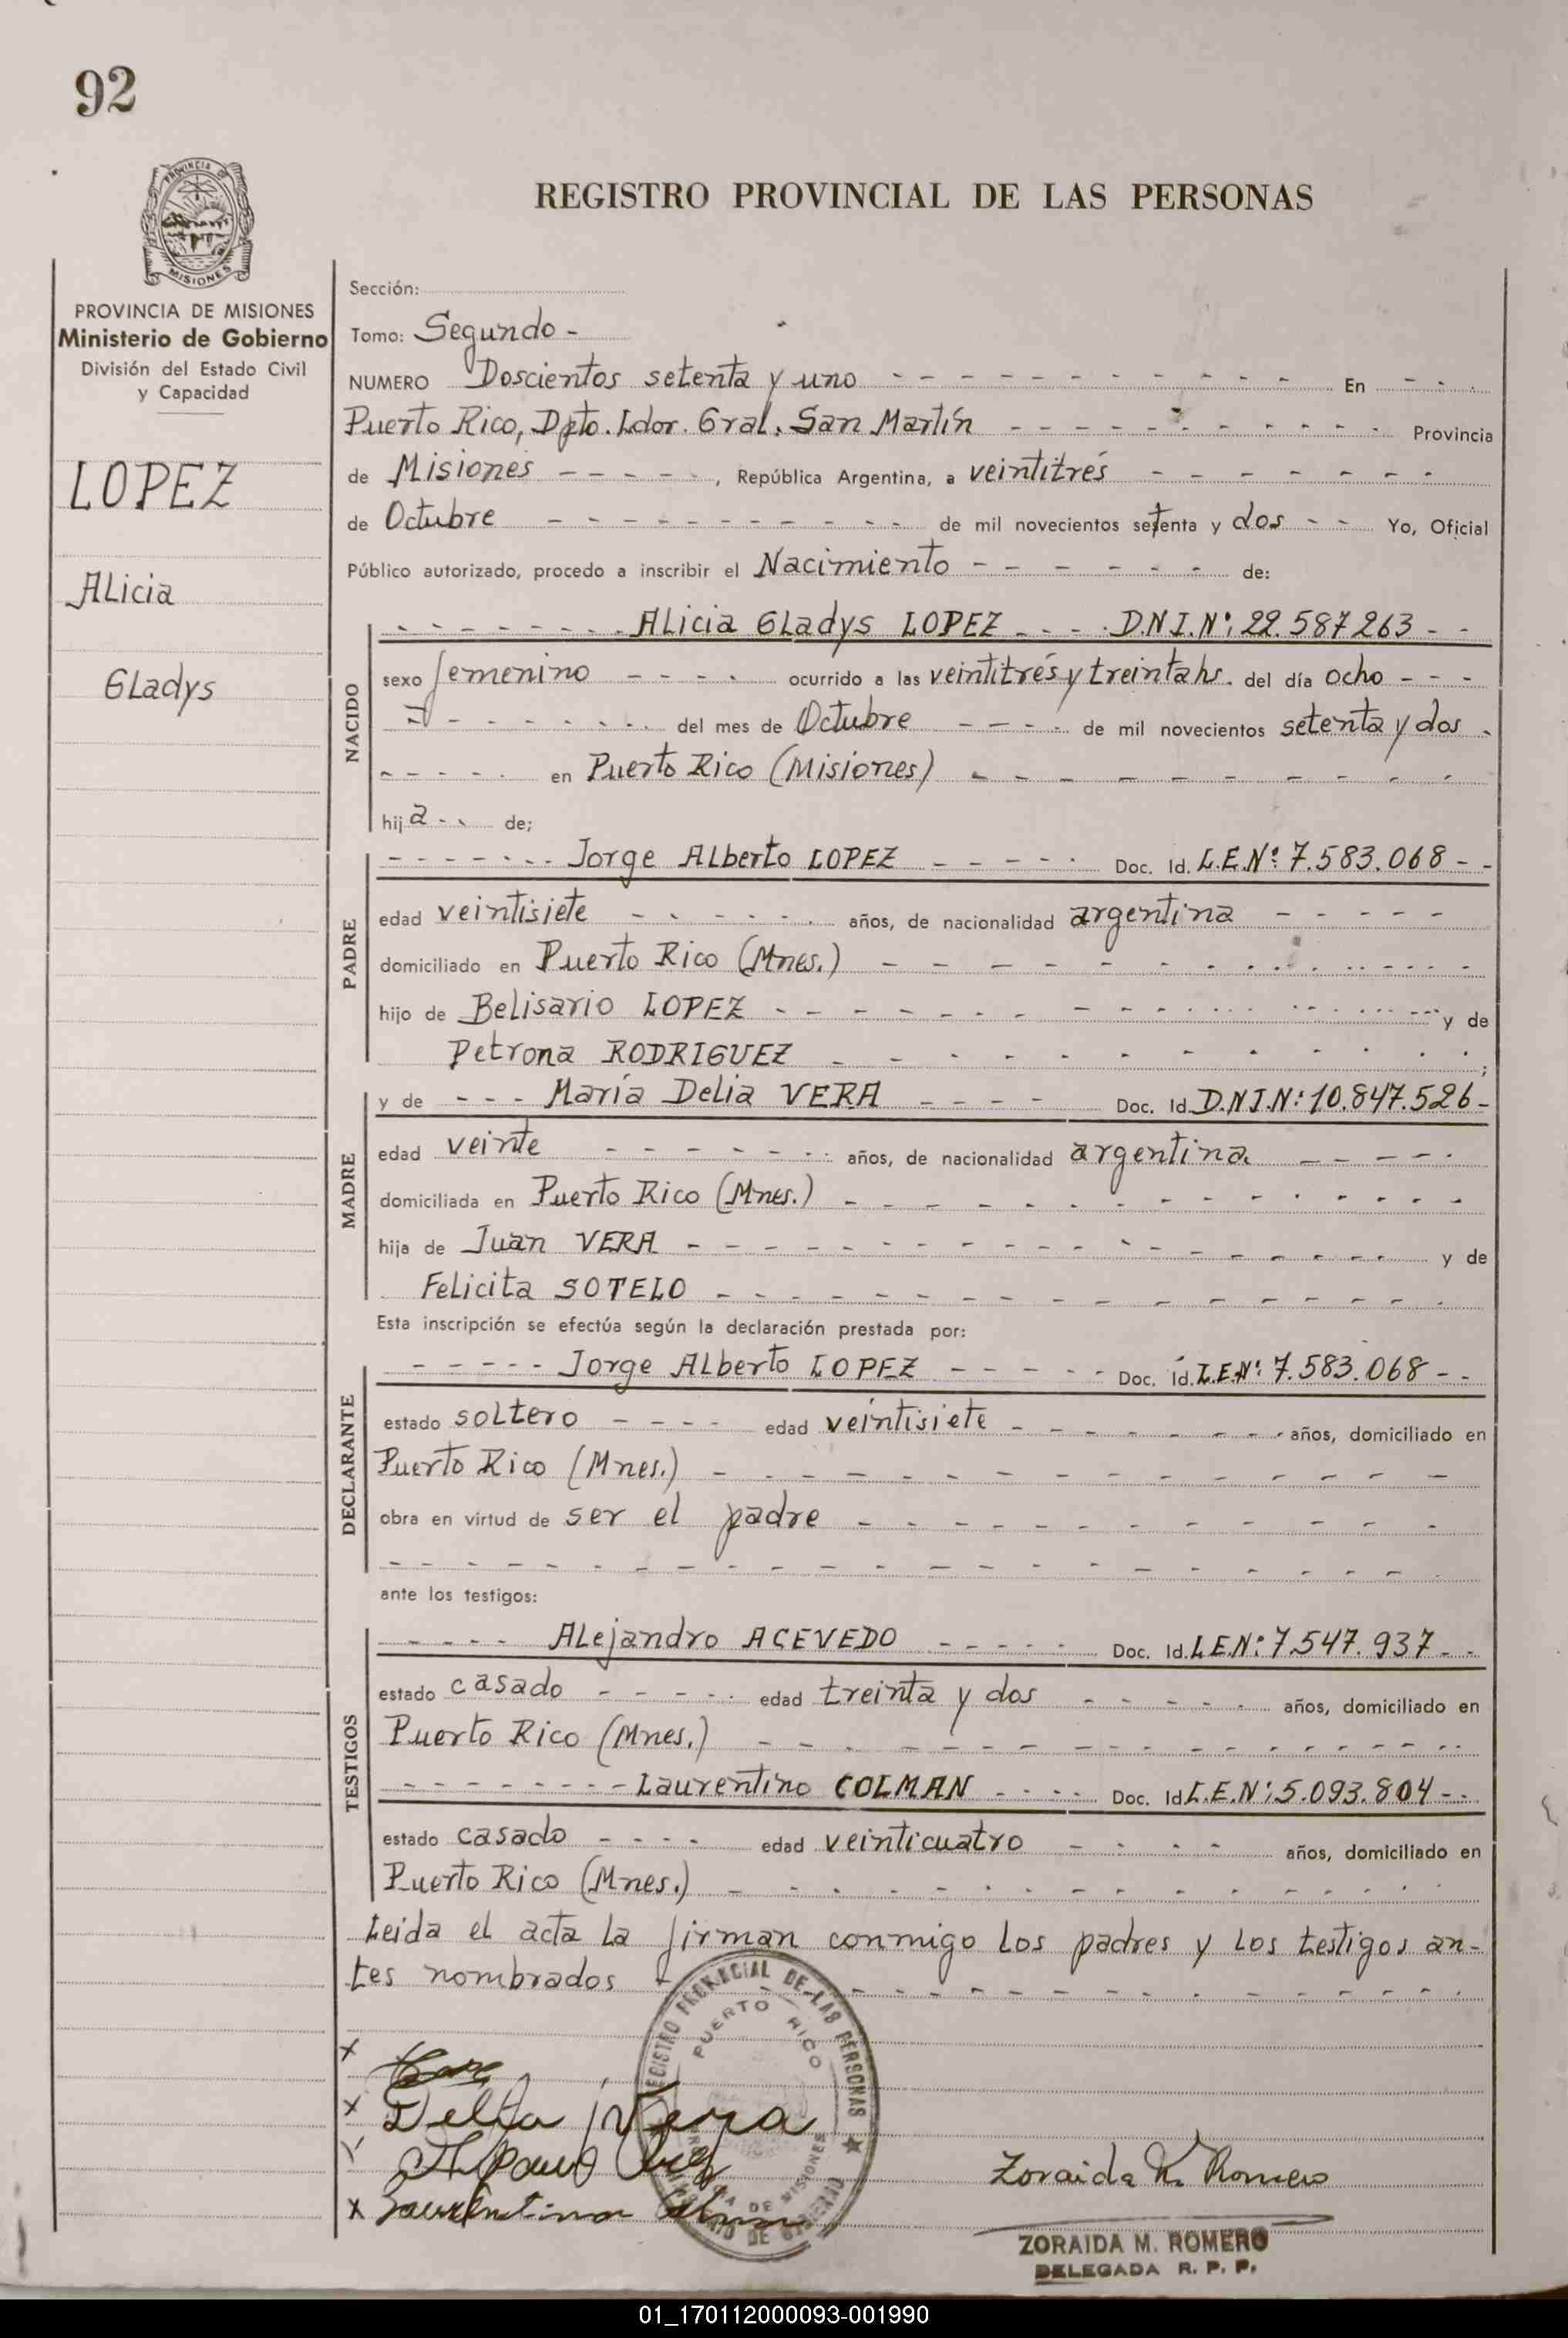 92
PROVINCIA DE MISIONES
REGISTRO PROVINCIAL DE LAS PERSONAS
PROVINCIA DE MISIONES
Ministerio de Gobierno
División del Estado Civil
y Capacidad
LOPEZ
Alicia
Gladys
Sección:
Tomo: Segundo -
NUMERO Doscientos setenta y uno - - - - - - - - - - - En - - .
Puerto Rico, Dpto. Ldor. Gral. San Martín - - - - - - - - - - Provincia
de Misiones - - - - - , República Argentina, a veintitrés - - - - - - -
de Octubre - - - - - - - - - - de mil novecientos setenta y dos - - Yo, Oficial
Público autorizado, procedo a inscribir el Nacimiento - - - - - - de:
NACIDO
- - - - - - - - Alicia Gladys LOPEZ - - - - D.N.I.N°: 22.587263 - -
sexo femenino - - - - - ocurrido a las veintitrés y treinta hs. del día ocho - - -
- - - - - - - - del mes de Octubre - - - - - de mil novecientos setenta y dos -
- - - - - en Puerto Rico (Misiones) - - - - - - - - -
hija - - de;
PADRE
- - - - - - - Jorge Alberto LOPEZ - - - - - Doc. Id. L.E.N°: 7.583.068 - -
edad veintisiete - - - - - - años, de nacionalidad argentina - - - - -
domiciliado en Puerto Rico (Mnes.) - - - - - - - - - -
hijo de Belisario LOPEZ - - - - - - - - - - y de
Petrona RODRIGUEZ - - - - - - - - - - ;
MADRE
y de - - - María Delia VERA - - - - Doc. Id. D.N.I.N°: 10.847.526 -
edad veinte - - - - - - - años, de nacionalidad argentina - - - - -
domiciliada en Puerto Rico (Mnes.) - - - - - - - - - -
hija de Juan VERA - - - - - - - - - - - - y de
Felicita SOTELO - - - - - - - - - - - -
Esta inscripción se efectúa según la declaración prestada por:
DECLARANTE
- - - - - Jorge Alberto LOPEZ - - - - - Doc. Id. L.E.N°: 7.583.068 - -
estado soltero - - - - edad veintisiete - - - - - - - - años, domiciliado en
Puerto Rico (Mnes.) - - - - - - - - - - - -
obra en virtud de ser el padre - - - - - - - - - -
- - - - - - - - - - - - - - - - - - -
ante los testigos:
TESTIGOS
- - - - - Alejandro ACEVEDO - - - - - Doc. Id. L.E.N°: 7.547.937 - -
estado casado - - - - - edad treinta y dos - - - - - - años, domiciliado en
Puerto Rico (Mnes.) - - - - - - - - - - - -
- - - - - - - - Laurentino COLMAN - - - - Doc. Id L.E.N°: 5.093.804 - -
estado casado - - - - edad veinticuatro - - - - - años, domiciliado en
Puerto Rico (Mnes.) - - - - - - - - - - - -
Leida el acta la firman conmigo los padres y los testigos an-
tes nombrados - - - - - - - - - - - - -
REGISTRO PROVINCIAL DE LAS PERSONAS
PUERTO RICO
PROVINCIA DE MISIONES
MINISTERIO DE GOBIERNO
x
x Delia Vera
x
x Laurentino Colman
Zoraida M. Romero
ZORAIDA M. ROMERO
DELEGADA R. P. P.
01_170112000093-001990